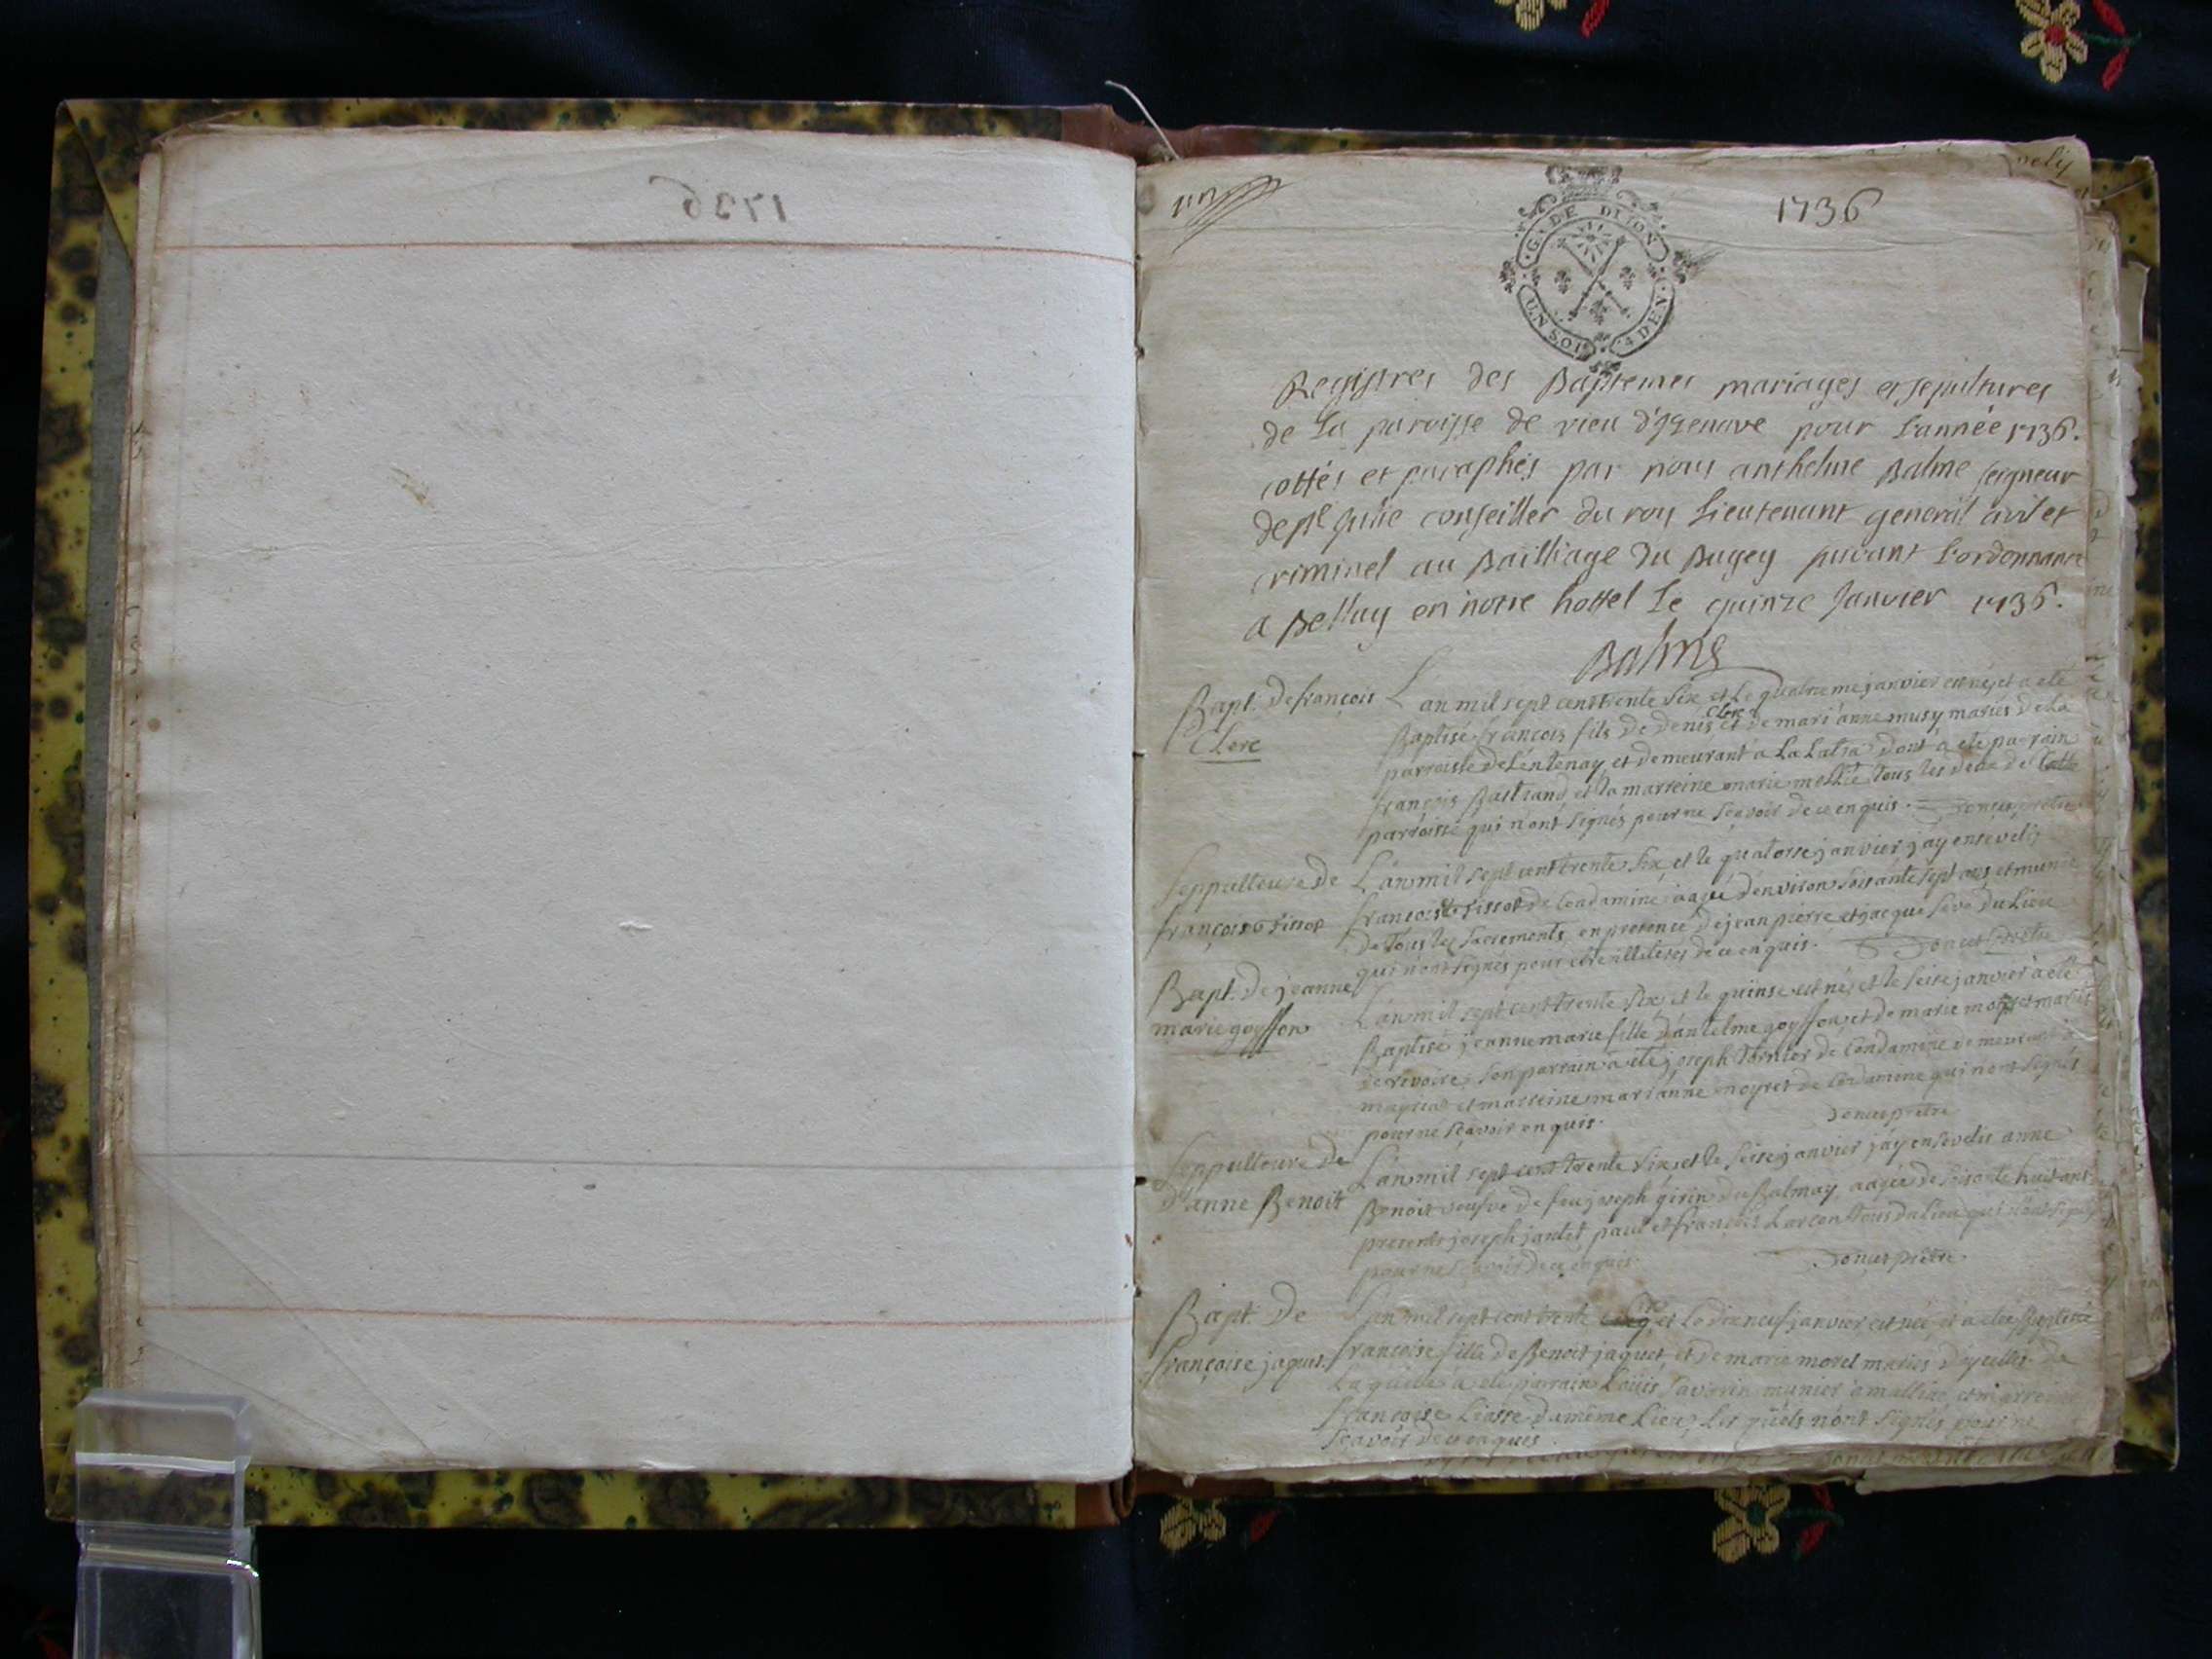 1736
un
1736
G. DE DIJON
UN SOL
4 DEN.
Registres des Baptemes mariages et sepultures
de La paroisse de vieu d'Izenave pour L'année 1736.
cottés et paraphés par nous anthelme Balme seigneur
de Ste Julie conseiller du roy Lieutenant general civil et
criminel au Bailliage du Bugey suivant L'ordonnance
a Bellay en notre hottel Le quinze Janvier 1736.
Balme
Bapt. de françois
Clerc
L'an mil sept cent trente six et le quatrieme janvier est né, et a eté
Baptisé françois fils de denis Clerc et de mari'anne musy mariés de La
parroisse de Lentenay et demeurant a La Latra dont a eté parrain
françois Bertrand et la marreine marie tous les deux de Cette
parroisse qui n'ont signés pour ne sçavoir de ce enquis.
Seppulteure de
françois tissot
L'an mil sept cent trente six, et le quatorse janvier j'ay ensevelis
françois tissot de Condamine aagé d'environ soisante sept ans et munie
de tous les sacrements en presence de jean pierre et jacque seve du Lieu
qui n'ont signés pour etre illiterés de ce enquis. Doncet pretre
Bapt. de jeanne
marie goyffon
L'an mil sept cent trente six, et le quinse est née et le seise janvier a eté
Baptisé jeanne marie fille d'antelme goyffon et de marie mariés
de rivoire, son parrain a eté joseph tornier de Condamine demeurant a
et marreine mari'anne neyret de Condamine qui n'ont signés
pour ne sçavoir enquis. Doncet pretre
Seppulteure de
d'anne Benoit
L'an mil sept cent trente six, et le seise janvier j'ay ensevelis anne
Benoit veufve de feu joseph girin du Balmay, aagée de soisante huit ans
presents joseph jantet, paul et françois Larcon tous du Lieu qui n'ont signés
pour ne sçavoir de ce enquis. Doncet pretre.
Bapt. de
françoise jaquet
L'an mil sept cent trente six et le dixneuf janvier est née et a eté Baptisé
françoise fille de Benoit jaquet, et de marie morel mariés d'ycelles. de
Laquelle a eté parrain Loüis Savarin munier a et marreine
françoise Liosse du même Lieu, Les quels n'ont signés pour ne
sçavoir de ce enquis.